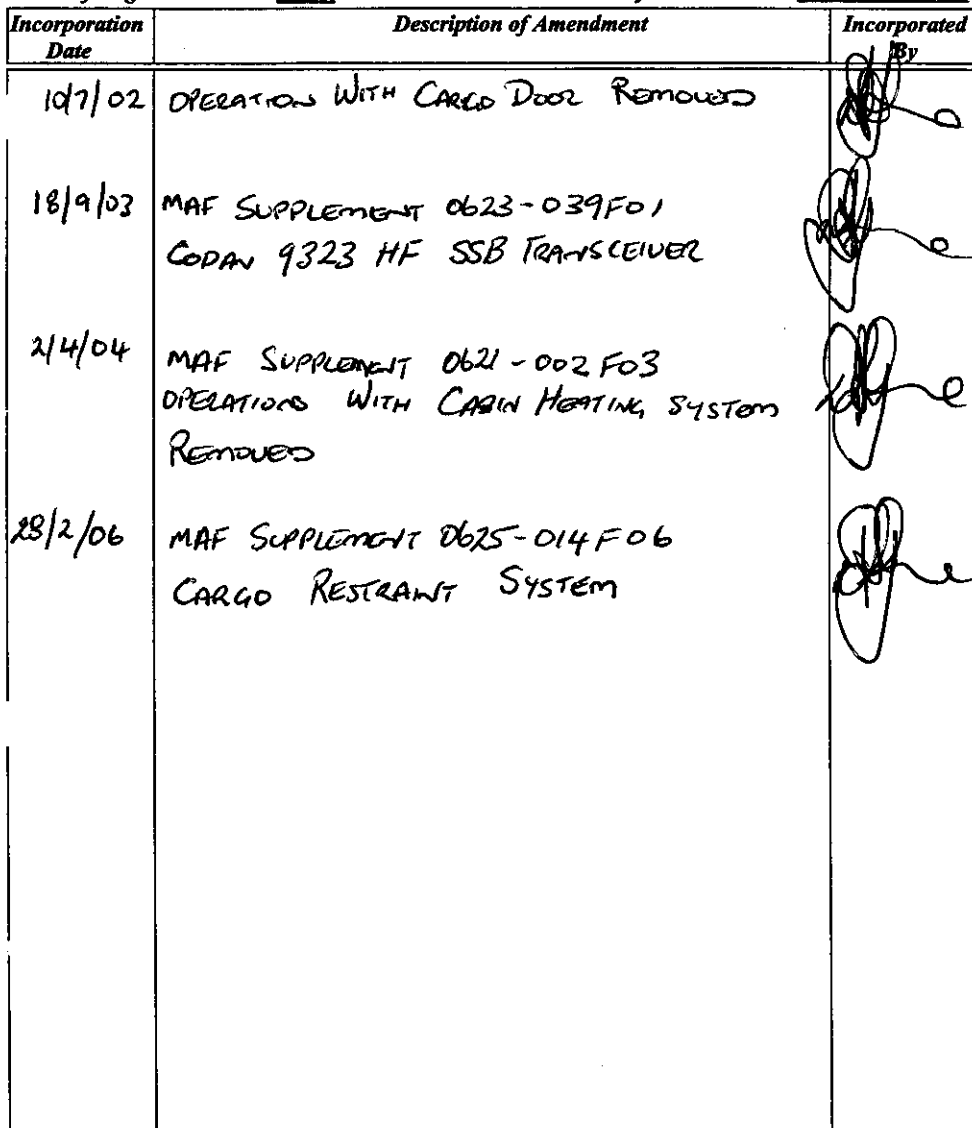 Incorporation Date
Description of Amendment
Incorporated By
10/7/02 OPERATION WITH CARGO DOOR REMOVED
18/9/03 MAF SUPPLEMENT 0623-039F01
CODAN 9323 HF SSB TRANSCEIVER
2/4/04 MAF SUPPLEMENT 0621-002F03
OPERATIONS WITH CABIN HEATING SYSTEM
REMOVED
28/2/06 MAF SUPPLEMENT 0625-014F06
CARGO RESTRAINT SYSTEM